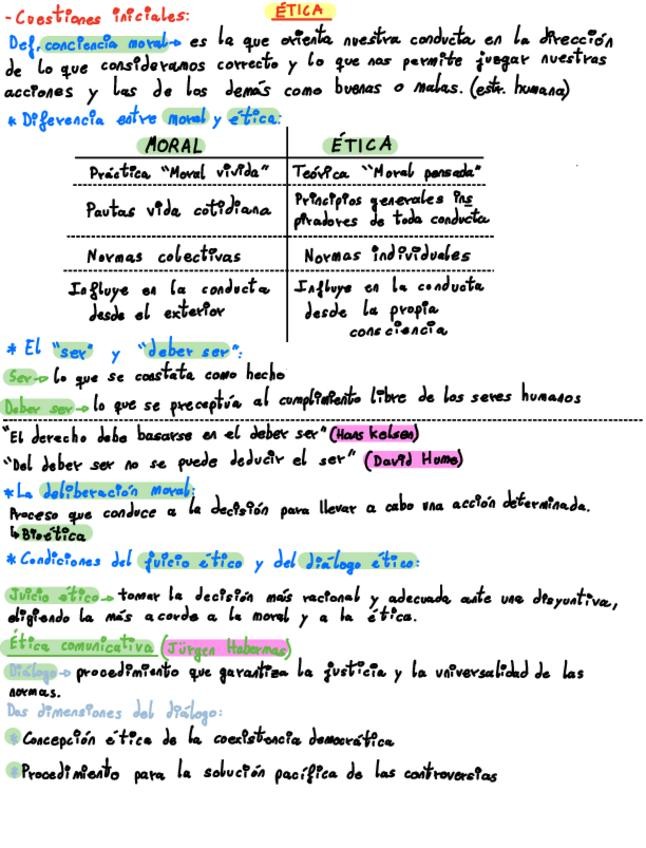 ÉTICA
- Cuestiones iniciales:
Def, conciencia moral→ es la que orienta nuestra conducta en la dirección
de lo que consideramos correcto y lo que nos permite juzgar nuestras
acciones y las de los demás como buenas o malas. (estr. humana)
* Diferencia entre moral y ética:
MORAL | ÉTICA
Práctica "Moral vivida" | Teórica "Moral pensada"
Pautas vida cotidiana | Principios generales ins
piradores de toda conducta
Normas colectivas | Normas individuales
Influye en la conducta | Influye en la conducta
desde el exterior | desde la propia
consciencia
* El "ser" y "deber ser":
Ser→ lo que se constata como hecho
Deber ser→ lo que se preceptúa al cumplimiento libre de los seres humanos
"El derecho debe basarse en el deber ser" (Hans Kelsen)
"Del deber ser no se puede deducir el ser" (David Hume)
* La deliberación moral:
Proceso que conduce a la decisión para llevar a cabo una acción determinada.
↳ Bioética
* Condiciones del juicio ético y del diálogo ético:
Juicio ético→ tomar la decisión más racional y adecuada ante una disyuntiva,
eligiendo la más acorde a la moral y a la ética.
Ética comunicativa (Jürgen Habermas)
Diálogo→ procedimiento que garantiza la justicia y la universalidad de las
normas.
Dos dimensiones del diálogo:
* Concepción ética de la coexistencia democrática
* Procedimiento para la solución pacífica de las controversias